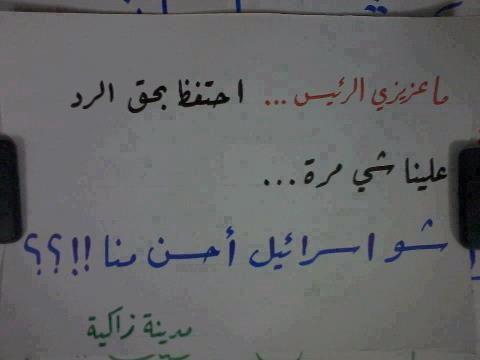 ما عزيزي الرئيس ... احتفظ بحق الرد
علينا شي مرة ...
شو اسرائيل أحسن منا !!؟؟
مدينة زاكية